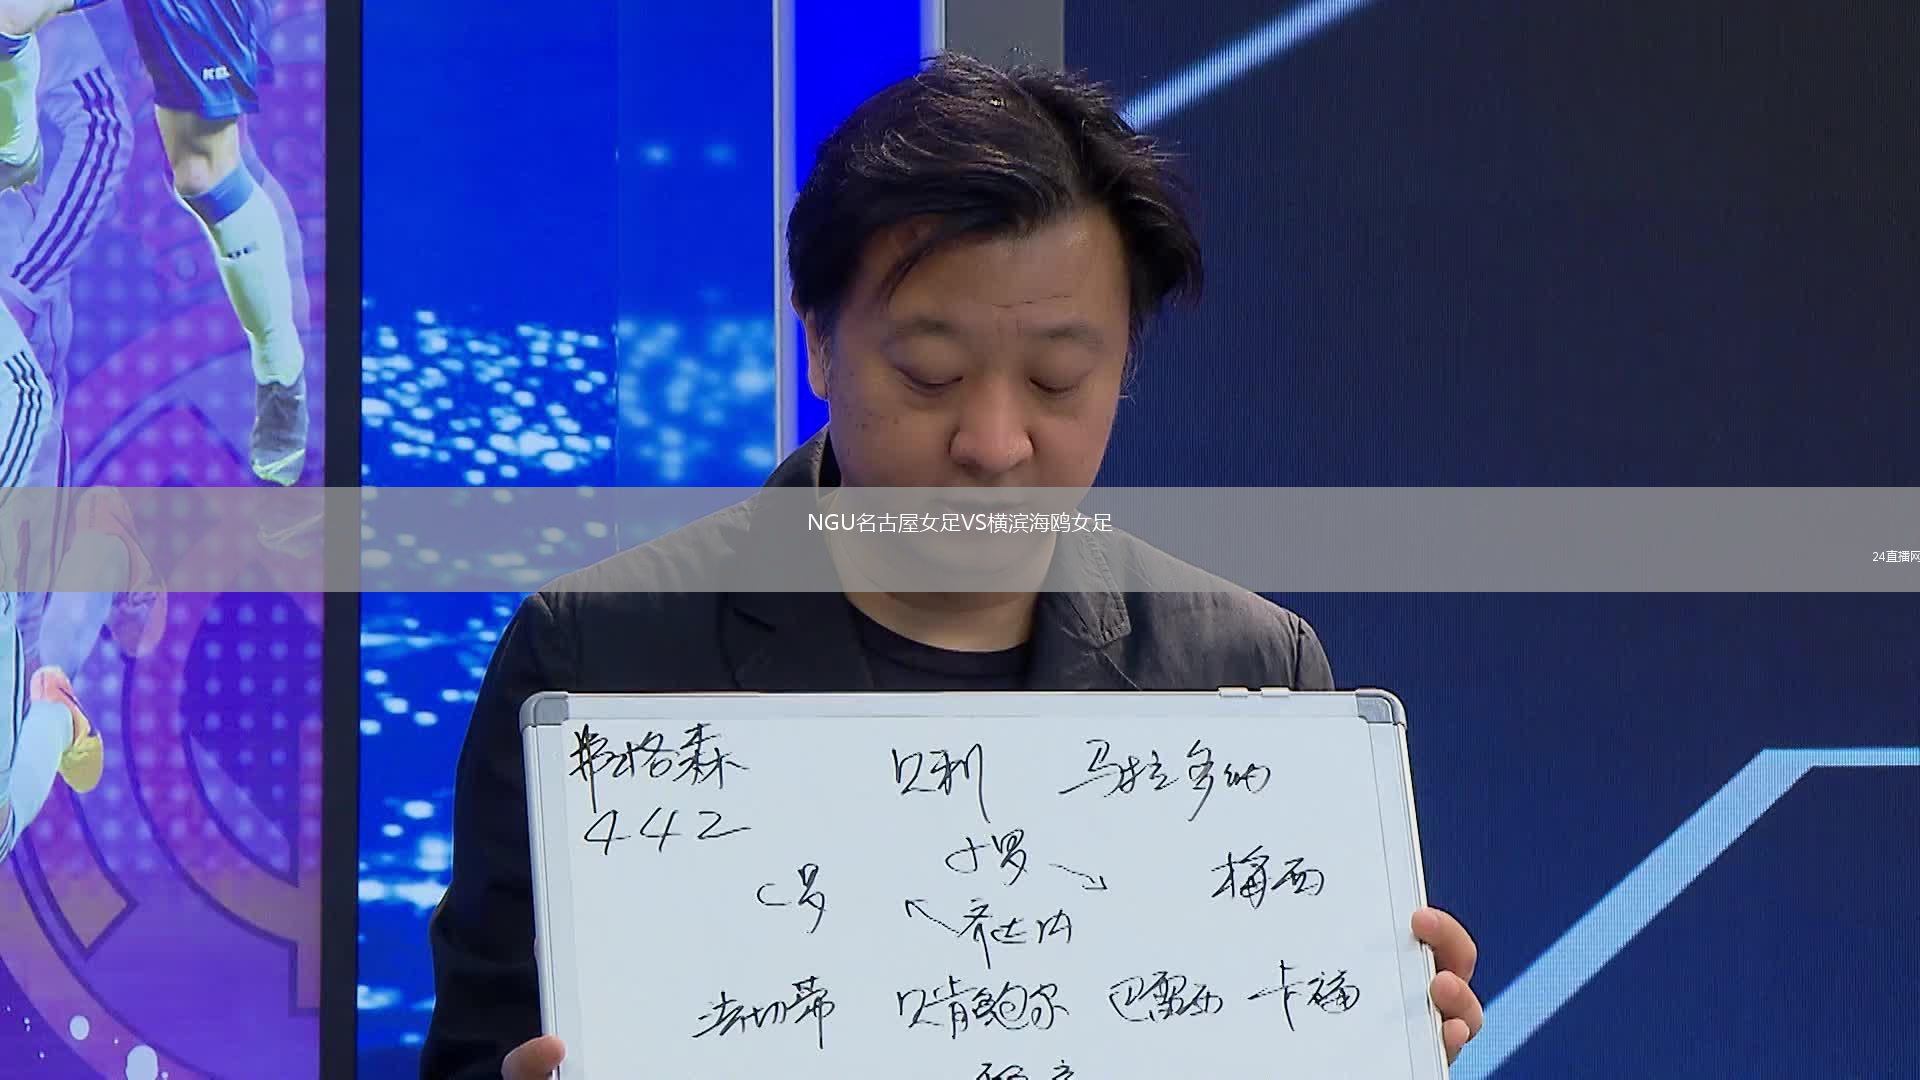 NGU名古屋女足VS横滨海鸥女足
24直播网
弗格森 贝利 马拉多纳
442
C罗 小罗 梅西
齐达内
法切蒂 贝肯鲍尔 巴雷西 卡福